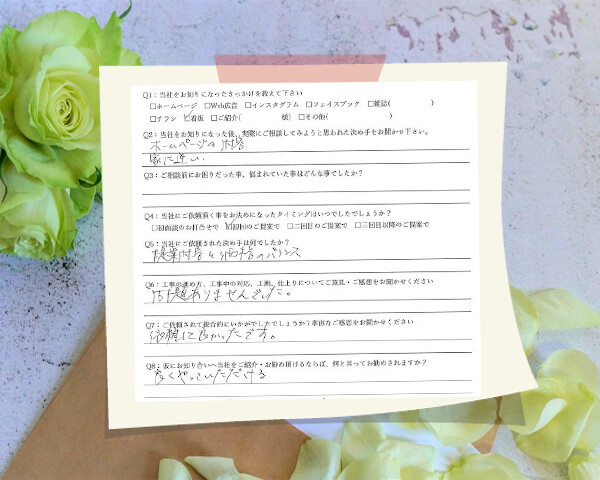 Q1：当社をお知りになったきっかけを教えて下さい
□ホームページ □Web広告 □インスタグラム □フェイスブック □雑誌(　　　)
□チラシ ☑看板 □ご紹介(　　　様) □その他(　　　)
Q2：当社をお知りになった後、実際にご相談してみようと思われた決め手をお聞かせ下さい。
ホームページの内容
家に近い
Q3：ご相談前にお困りだった事、悩まれていた事はどんな事でしたか？
Q4：当社にご依頼頂く事をお決めになったタイミングはいつでしたでしょうか？
□初面談のお打合せで ☑初回のご提案で □二回目のご提案で □三回目以降のご提案で
Q5：当社にご依頼された決め手は何でしたか？
提案内容と価格のバランス
Q6：工事の進め方、工事中の対応、工期、仕上りについてご意見・ご感想をお聞かせください
問題ありませんでした。
Q7：ご依頼されて総合的にいかがでしたでしょうか？率直なご感想をお聞かせください
依頼して良かったです。
Q8：仮にお知り合いへ当社をご紹介・お勧め頂けるならば、何と言ってお勧めされますか？
良くやっていただける